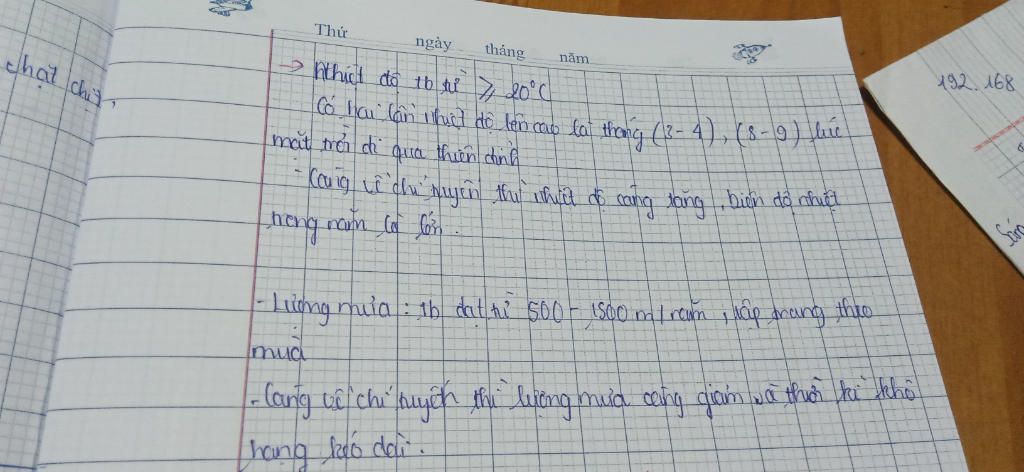 Thứ ngày tháng năm
chặt chẽ,
→ Nhiệt độ tb từ ≥ 20°C
192.168
Có hai lần nhiệt độ lên cao là tháng (3-4), (8-9) lúc
mặt trời đi qua thiên đỉnh
- Càng về chí tuyến thì nhiệt độ càng tăng, biên độ nhiệt
trong năm là lớn.
- Lượng mưa : tb đạt từ 500 - 1500 m/năm, tập trung theo
mùa
- Càng về chí tuyến thì lượng mưa càng giảm và thời kì khô
hạng kéo dài.